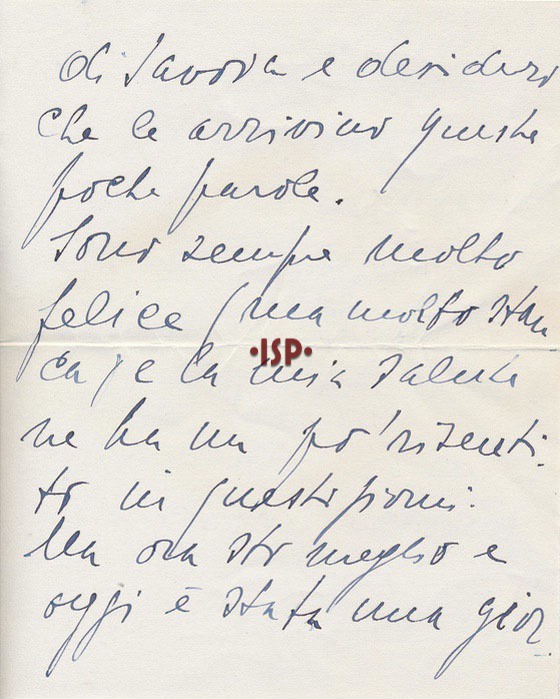 di Savoia e desidero
che le arrivino queste
poche parole.
Sono sempre molto
felice (ma molto stan
ca) e la mia salute
•ISP•
ne ha un po' risenti-
to in questi giorni.
Ma ora sto meglio e
oggi è stata una gior-